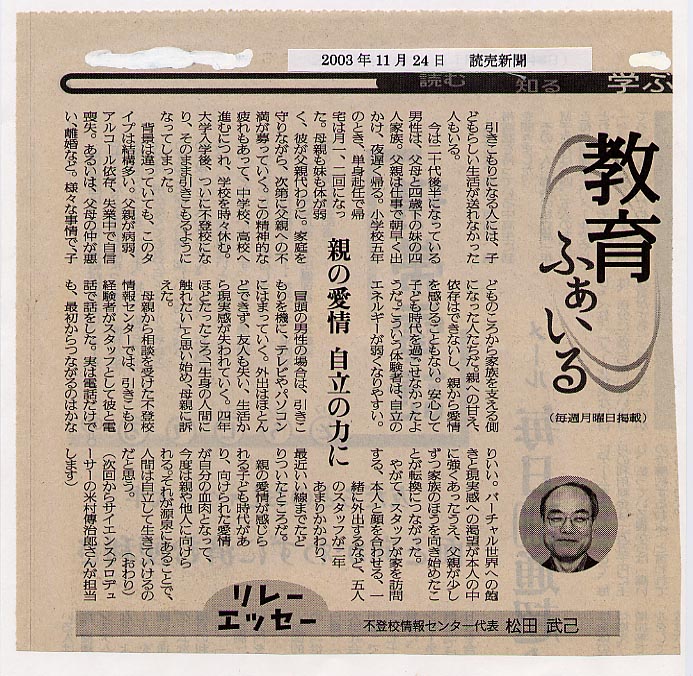 2003年11月24日　読売新聞
読む　知る　学ぶ
教育
ふぁいる
（毎週月曜日掲載）
親の愛情 自立の力に
引きこもりになる人には、子
どもらしい生活が送れなかった
人もいる。
今は二十代後半になっている
男性は、父母と四歳下の妹の四
人家族。父親は仕事で朝早く出
かけ、夜遅く帰る。小学校五年
のとき、単身赴任で帰
宅は月一、二回になっ
た。母親も妹も体が弱
く、彼が父親代わりに。家庭を
守りながら、次第に父親への不
満が募っていく。この精神的な
疲れもあって、中学校、高校へ
進むにつれ、学校を時々休む。
大学入学後、ついに不登校にな
り、そのまま引きこもるように
なってしまった。
背景は違っていても、このタ
イプは結構多い。父親が病弱、
アルコール依存、失業中で自信
喪失。あるいは、父母の仲が悪
い、離婚など。様々な事情で、子
どものころから家族を支える側
になった人たちだ。親への甘え、
依存はできないし、親から愛情
を感じることもない。安心して
子ども時代を過ごせなかったよ
うだ。こういう体験者は、自立の
エネルギーが弱くなりやすい。
冒頭の男性の場合は、引きこ
もりを機に、テレビやパソコン
にはまっていく。外出はほとん
どできず、友人も失い、生活か
ら現実感が失われていく。四年
ほどたったころ、「生身の人間に
触れたい」と思い始め、母親に訴
えた。
母親から相談を受けた不登校
情報センターでは、引きこもり
経験者がスタッフとして彼と電
話で話をした。実は電話だけで
も、最初からつながるのはかな
りいい。バーチャル世界への飽
きと現実感への渇望が本人の中
に強くあったうえ、父親が少し
ずつ家族のほうを向き始めたこ
とが転換につながった。
やがて、スタッフが家を訪問
する、本人と顔を合わせる、一
緒に外出するなど、五人
のスタッフが二年
あまりかかわり、
最近いい線までたど
りついたところだ。
親の愛情が感じら
れる子ども時代があ
り、向けられた愛情
が自分の血肉となって、
今度は親や他人に向けら
れる。それが源泉にあることで、
人間は自立して生きていけるの
だと思う。（おわり）
（次回からサイエンスプロデュ
ーサーの米村傳治郎さんが担当
します）
リレー
エッセー
不登校情報センター代表 松田 武己